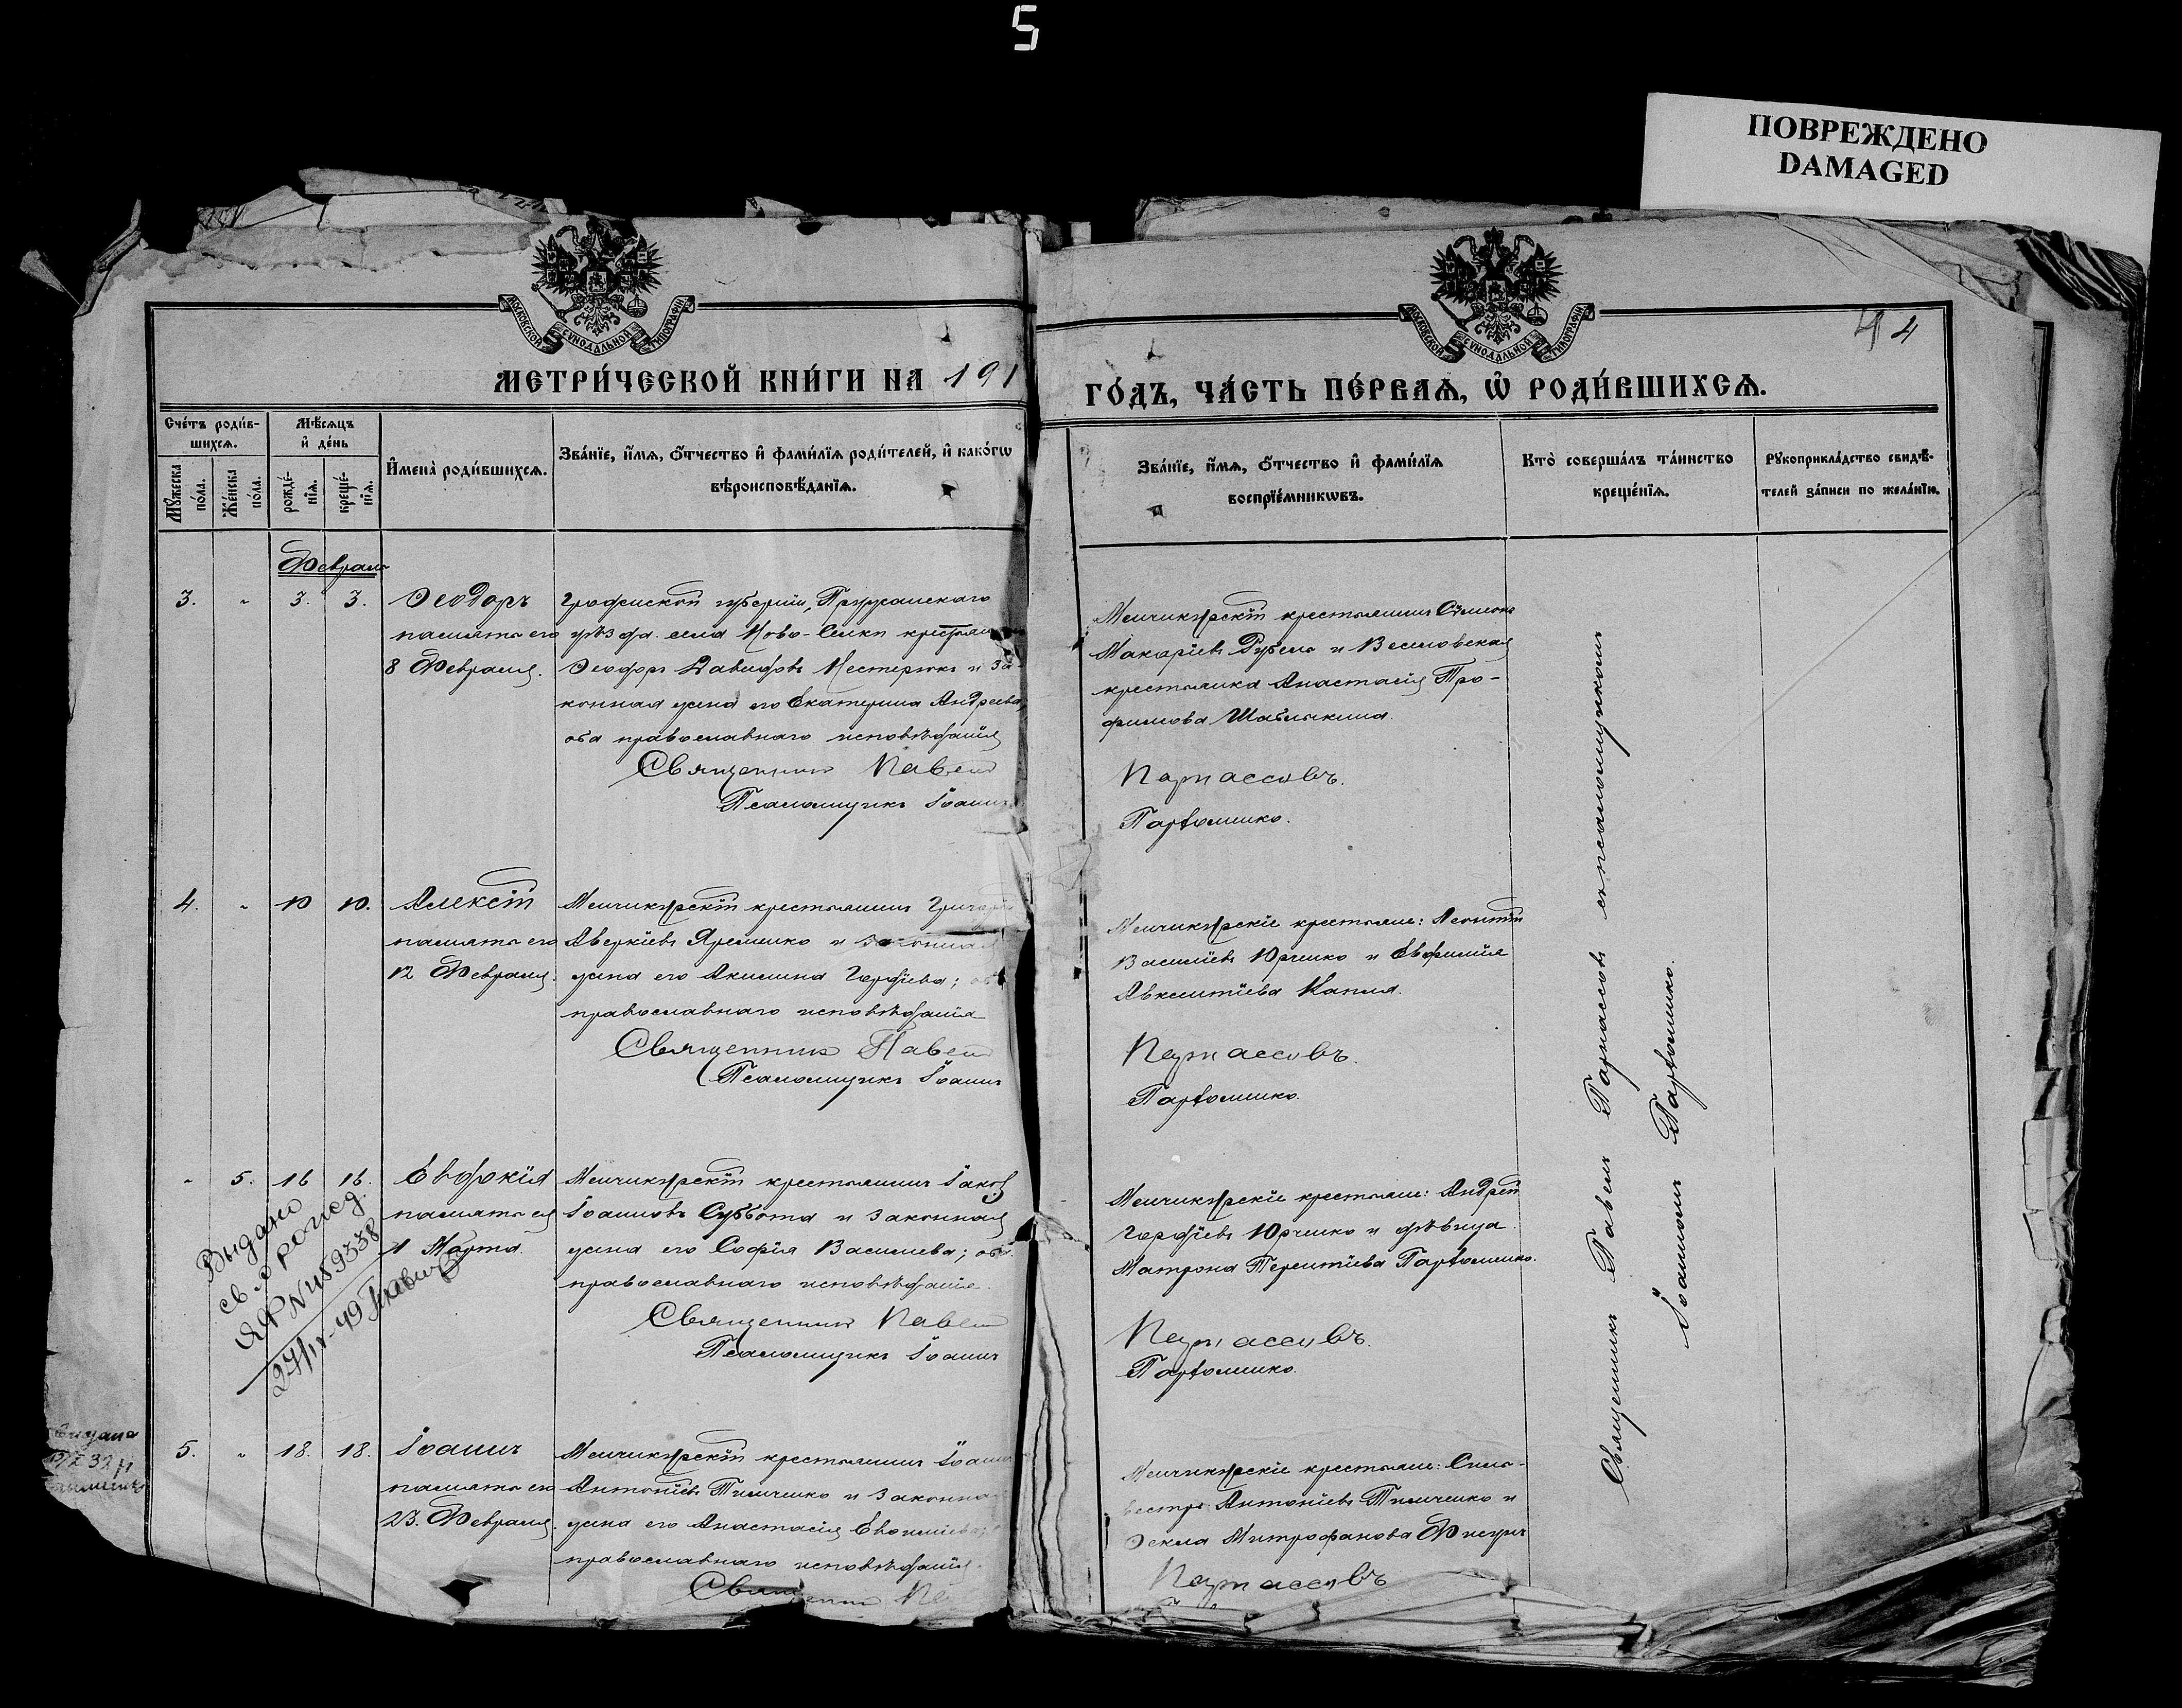 5
ПОВРЕЖДЕНО
DAMAGED
МОСКОВСКОЙ СѴНОДАЛЬНОЙ ТИПОГРАФІИ
МОСКОВСКОЙ СѴНОДАЛЬНОЙ ТИПОГРАФІИ
44
МЕТРИ́ЧЕСКОЙ КНИ́ГИ НА 191
ГО́ДЪ, ЧА́СТЬ ПЕ́РВАѦ, Ѽ РОДИ́ВШИХСѦ.
Сче́тъ роди́в-
шихсѧ.
Мѣ́сѧцъ
и҆ де́нь
Мꙋ́жеска
по́ла.
Же́нска
по́ла.
рожде́-
нїѧ.
креще́-
нїѧ.
И҆мена̀ роди́вшихсѧ.
Зва́нїе, и҆́мѧ, ѻ҆́тчество и҆ фами́лїѧ роди́телей, и҆ како́гѡ
вѣроисповѣ́данїѧ.
Зва́нїе, и҆́мѧ, ѻ҆́тчество и҆ фами́лїѧ
воспрїе́мникѡвъ.
Кто̀ соверша́лъ та́инство
креще́нїѧ.
Рꙋкоприкла́дство свидѣ́-
телей за́писи по жела́нїю.
Февраль
3. " 3. 3. Ѳеодоръ
память его
8 Февраля.
Гродненской губерніи, Пружанскаго
уѣзда. села Ново-Селки крестьян
Ѳеодоръ Давидовъ Нестерюкъ и за-
конная жена его Екатерина Андреева,
оба православнаго исповѣданія
Священникъ Павелъ
Псаломщикъ Іоаннъ
Менчикурскій крестьянинъ Сѵмеонъ
Макаріевъ Рубель и Веселовская
крестьянка Анастасія Тро-
фимова Шаблыкина.
Парнассовъ.
Парѳоменко.
4. " 10 10. Алексій
память его
12 Февраля.
Менчикурскій крестьянинъ Григорій
Аверкіевъ Яременко и законная
жена его Акилина Гордіева; об
православнаго исповѣданія
Священникъ Павелъ
Псаломщикъ Іоаннъ
Менчикурскіе крестьяне: Леонтій
Василіевъ Юрченко и Евфимія
Авксентіева Капля.
Парнассовъ.
Парѳоменко.
" 5. 16 16. Евдокія
память ея
1 Марта.
Менчикурскій крестьянинъ Іаковъ
Іоанновъ Суббота и законная
жена его Софія Василіева; оба
православнаго исповѣданія.
Священникъ Павелъ
Псаломщикъ Іоаннъ
Менчикурскіе крестьяне: Андрей
Гордіевъ Юрченко и дѣвица
Матрона Терентіева Парѳоменко.
Парнассовъ.
Парѳоменко.
Выдано
св. о рожд.
27/IV-49
5. " 18. 18. Іоаннъ
память его
23. Февраля.
Менчикурскій крестьянинъ Іоаннъ
Антоніевъ Тимченко и законная
жена его Анастасія Евѳиміева;
православнаго исповѣданія.
Священникъ Па
Менчикурскіе крестьяне: Силь-
вестръ Антоніевъ Тимченко и
Ѳекла Митрофанова Фисунъ
Парнассовъ
Священникъ Павелъ Парнассовъ съ псаломщикомъ
Іоанномъ Парѳоменко.